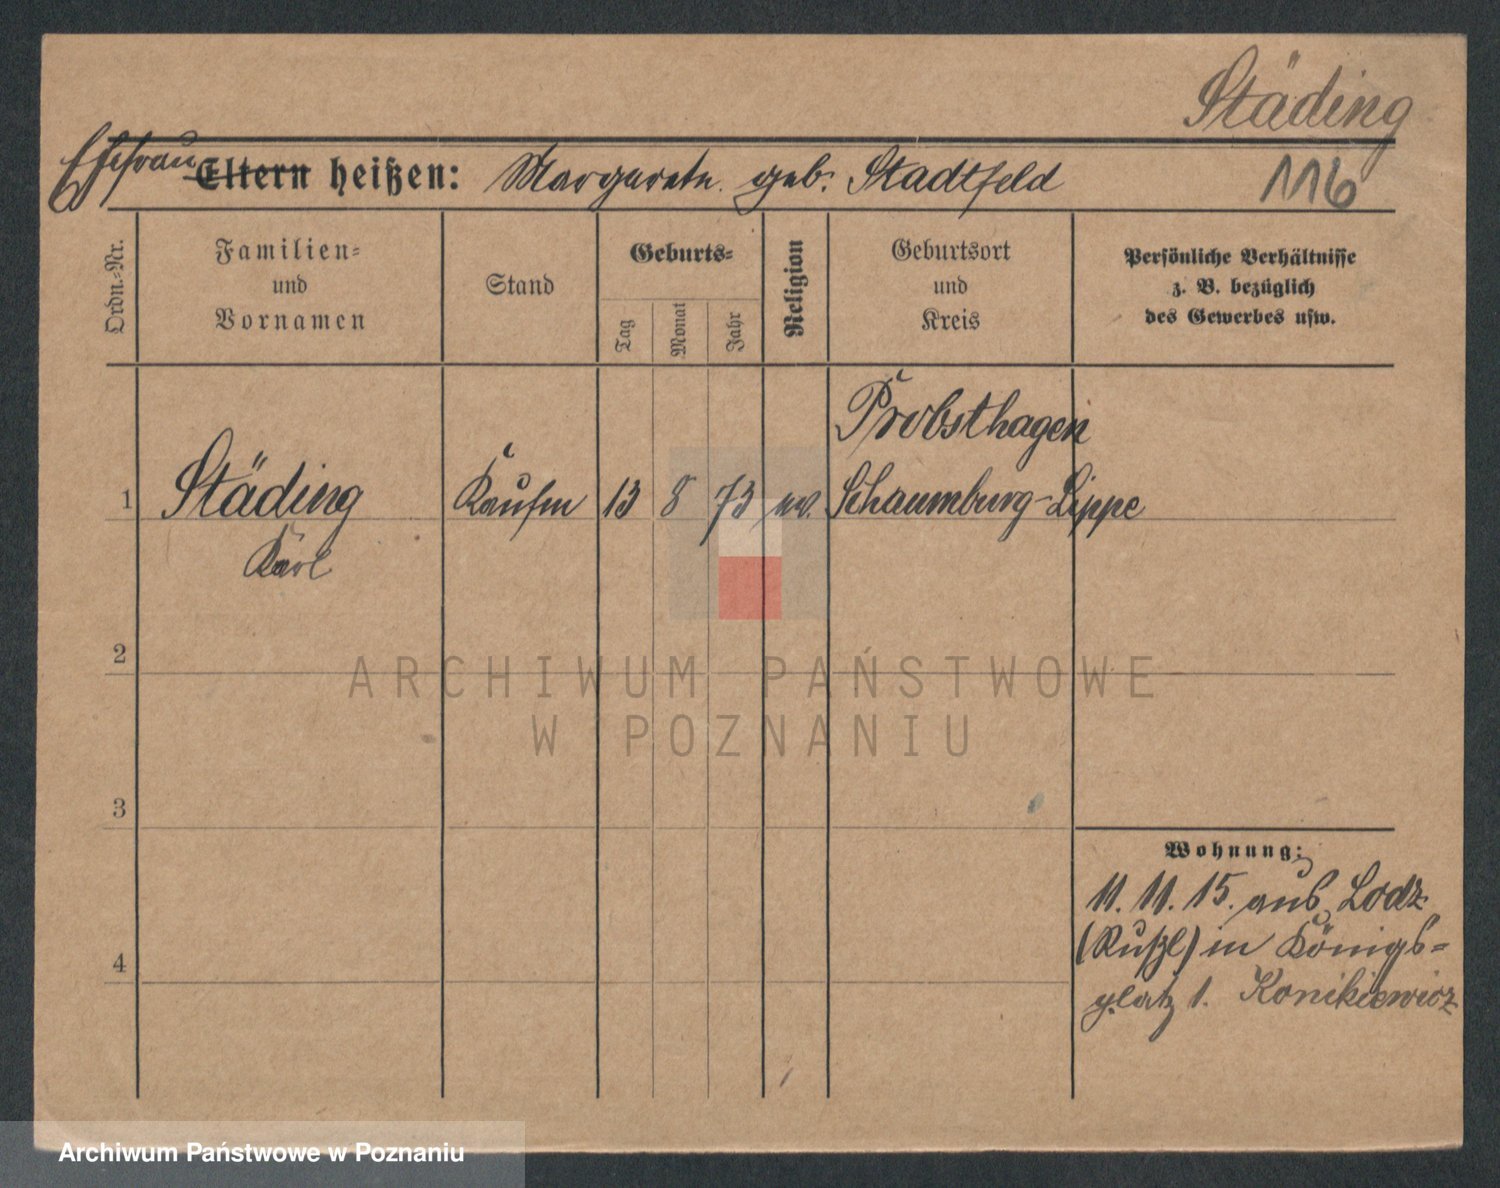 Städing
Ehefrau Eltern heißen: Margarete geb. Stadtfeld
116
Ordn.-Nr.
Familien-
und
Vornamen
Stand
Geburts-
Tag
Monat
Jahr
Religion
Geburtsort
und
Kreis
Persönliche Verhältnisse
z. B. bezüglich
des Gewerbes usw.
Probsthagen
1 Städing Kaufm 13 8 73 ev. Schaumburg-Lippe
Karl
2
3
4
Wohnung:
11. 11. 15. aus Lodz
(Rußl) in Königs-
platz 1. Konikiewicz
ARCHIWUM PAŃSTWOWE
W POZNANIU
Archiwum Państwowe w Poznaniu